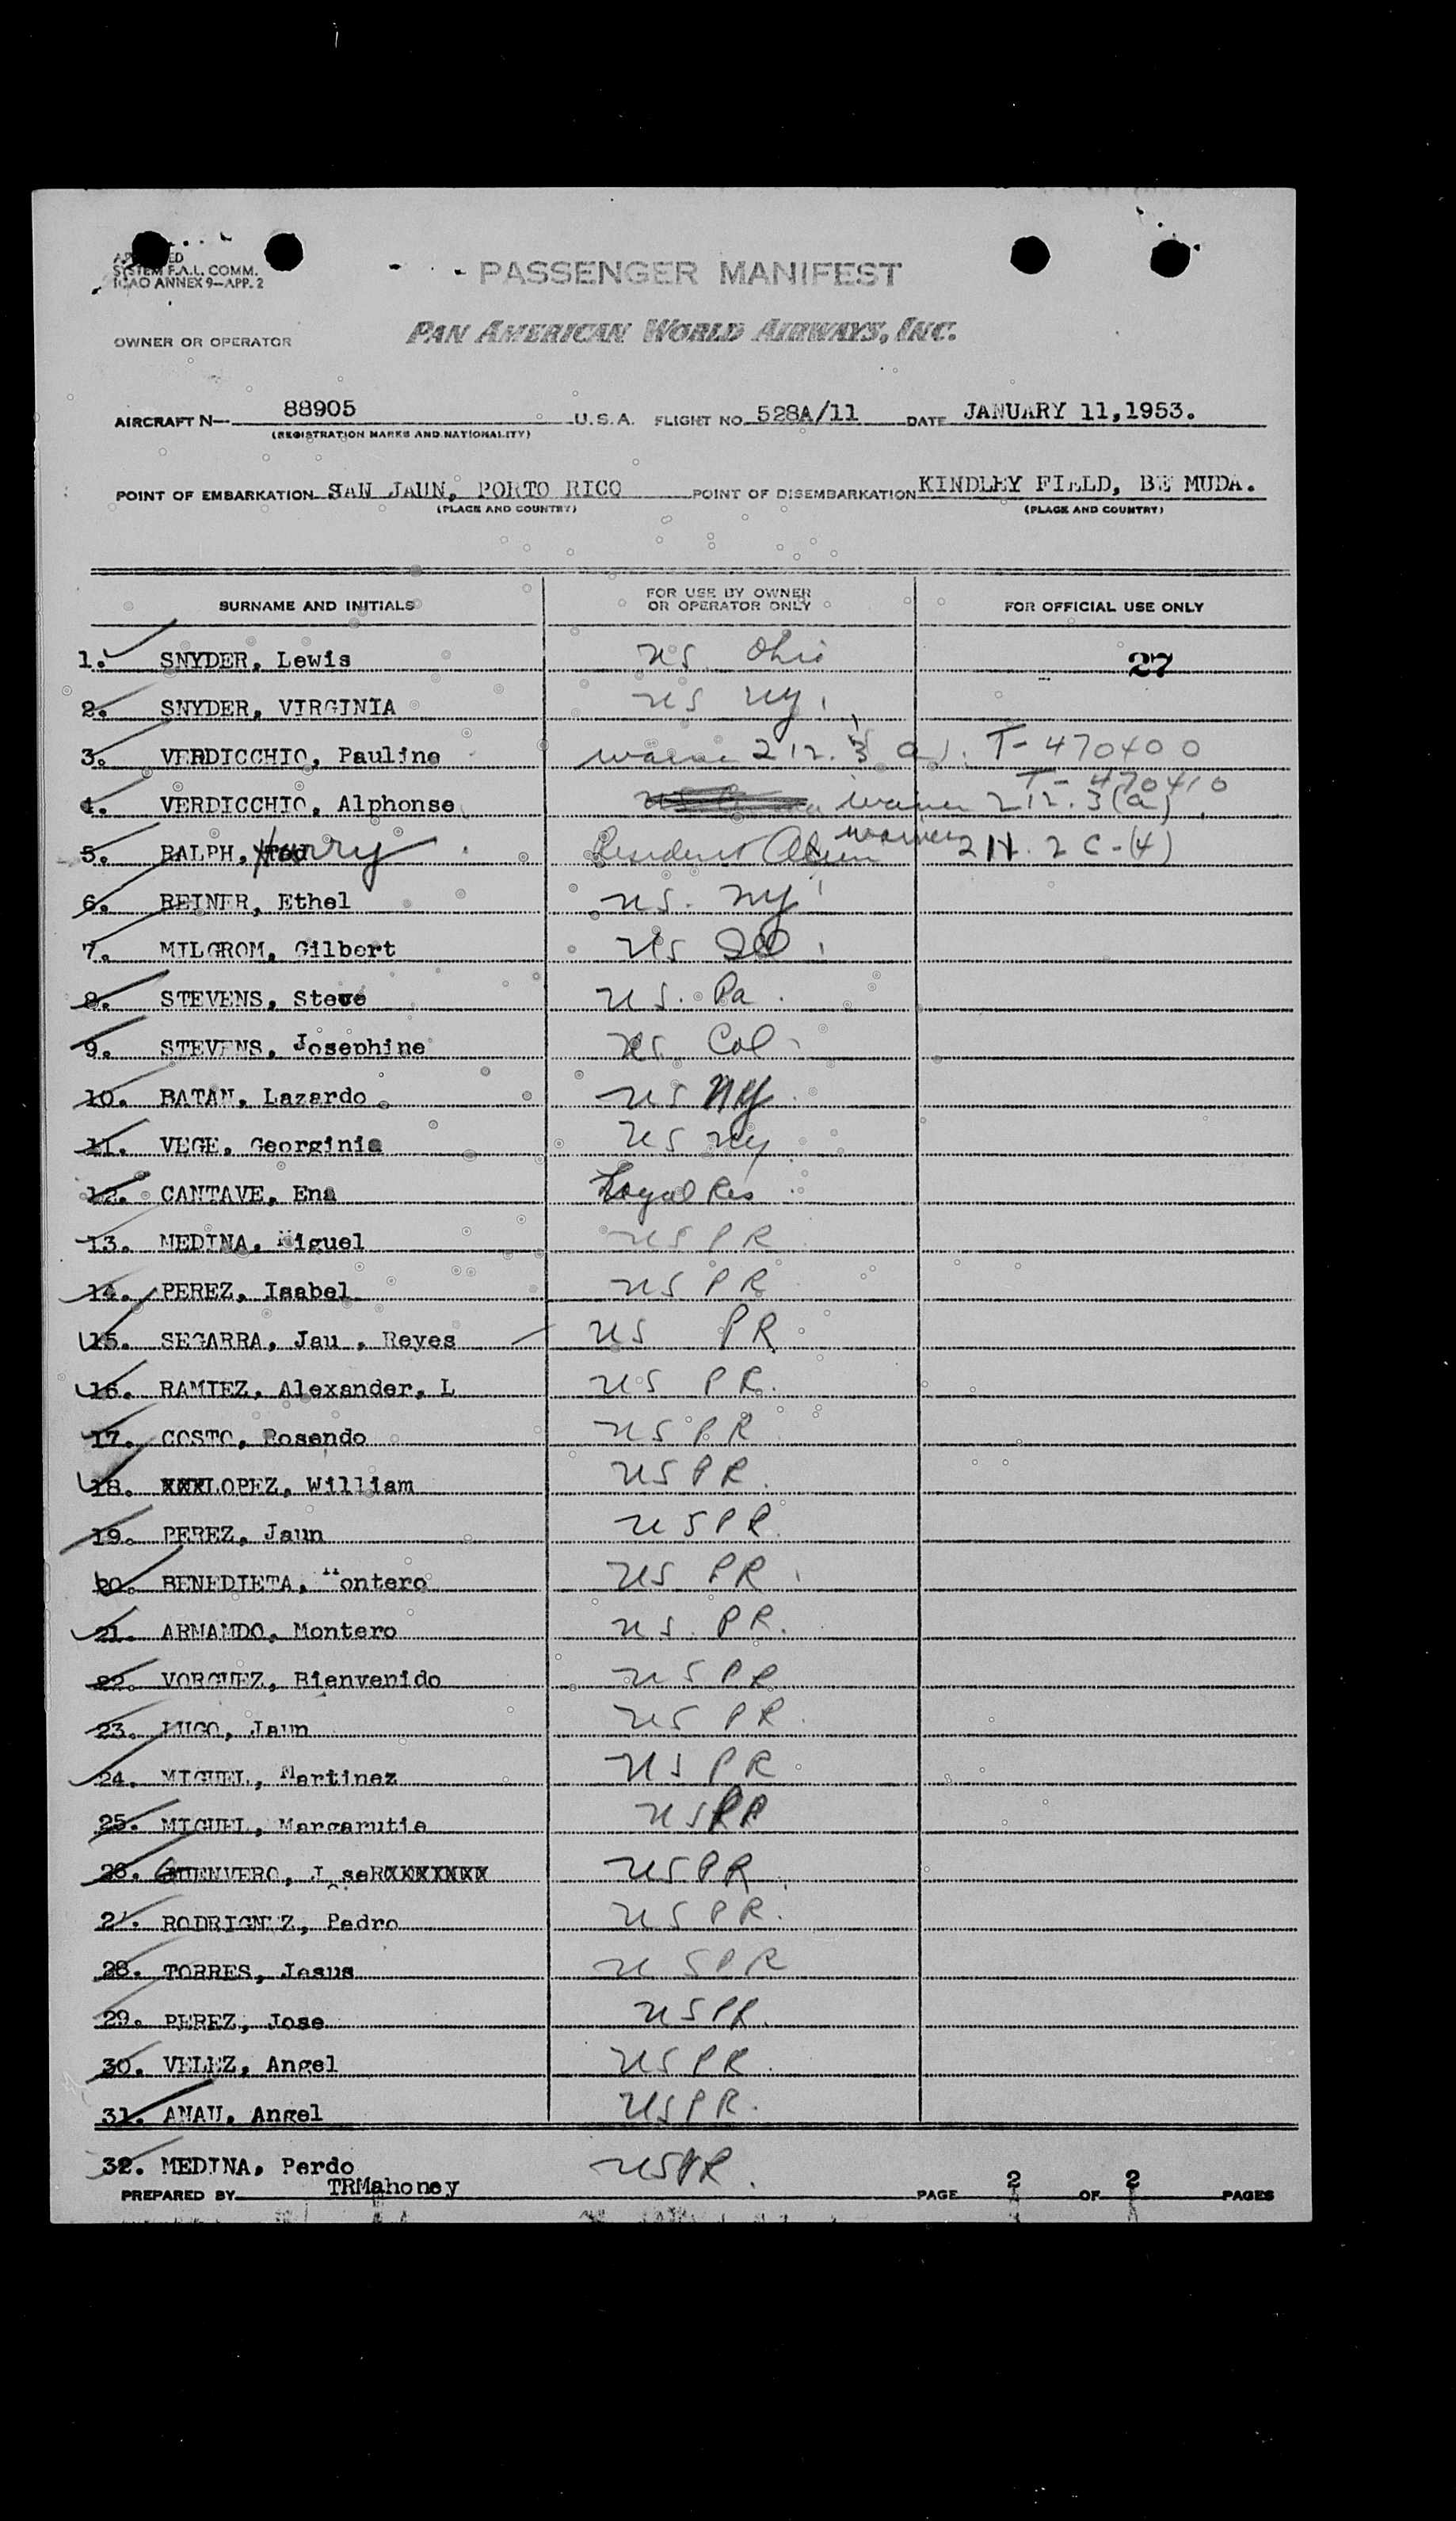 SYSTEM F.A.L. COMM.
ICAO ANNEX 9—APP. 2
PASSENGER MANIFEST
OWNER OR OPERATOR PAN AMERICAN WORLD AIRWAYS, INC.
AIRCRAFT N— 88905 U.S.A. FLIGHT NO. 528A/11 DATE JANUARY 11,1953.
(REGISTRATION MARKS AND NATIONALITY)
POINT OF EMBARKATION SAN JAUN, PORTO RICO POINT OF DISEMBARKATION KINDLEY FIELD, BE MUDA.
(PLACE AND COUNTRY) (PLACE AND COUNTRY)
SURNAME AND INITIALS FOR USE BY OWNER OR OPERATOR ONLY FOR OFFICIAL USE ONLY
1. SNYDER, Lewis US Ohio 27
2. SNYDER, VIRGINIA US NY
3. VERDICCHIO, Pauline waiver 212.3(a) T-470400
T-470410
4. VERDICCHIO, Alphonse waiver 212.3(a)
5. RALPH, Harry Resident Alien waiver 211.2 C-(4)
6. REINER, Ethel US. NY
7. MILGROM, Gilbert US Ill
8. STEVENS, Steve US. Pa
9. STEVENS, Josephine US. Col
10. BATAN, Lazardo US NY
11. VEGE, Georginia US NY
12. CANTAVE, Ena Legal Res
13. MEDINA, Miguel US PR
14. PEREZ, Isabel US PR
15. SEGARRA, Jau , Reyes US PR
16. RAMIEZ, Alexander, L US PR.
17. COSTO, Rosendo US PR
18. XXXLOPEZ, William US PR.
19. PEREZ, Jaun US PR.
20. BENEDIETA, Montero US PR
21. ARMAMDO, Montero US. PR.
22. VORGUEZ, Bienvenido US PR
23. LUGO, Jaun US PR.
24. MIGUEL, Martinez US PR
25. MIGUEL, Margarutie US PR
26. GUENVERO, J seRXXXXXXX US PR
27. RODRIGNEZ, Pedro US PR.
28. TORRES, Jesus US PR
29. PEREZ, Jose US PR.
30. VELEZ, Angel US PR.
31. AMAU, Angel US PR.
32. MEDINA, Perdo US PR.
PREPARED BY TRMahoney PAGE 2 OF 2 PAGES